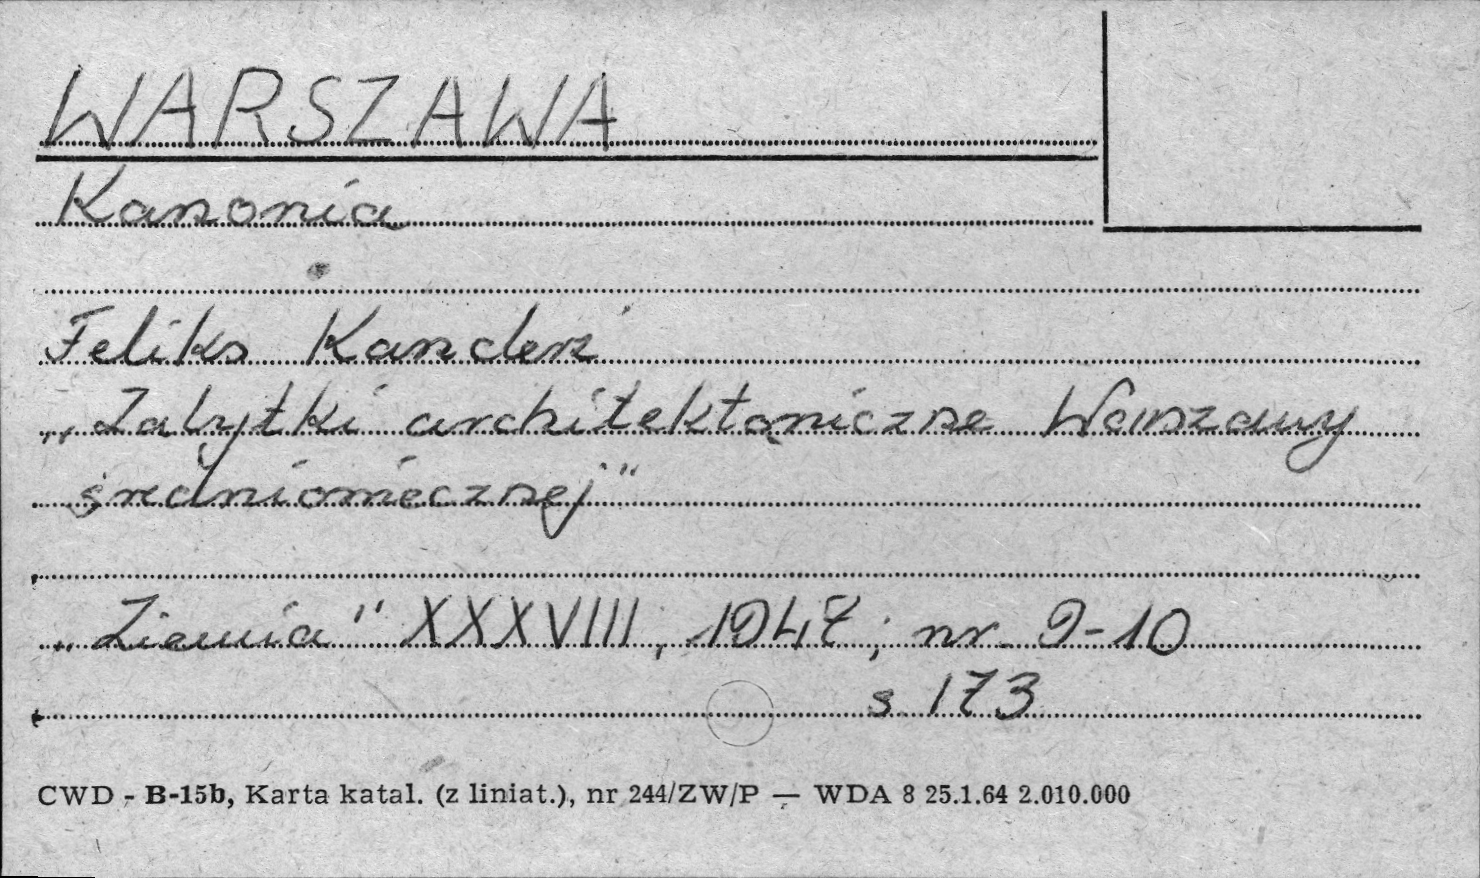 WARSZAWA
Kanonia
Feliks Kanclerz
„Zabytki architektoniczne Warszawy
średniowiecznej"
„Ziemia" XXXVIII, 1947; nr 9-10
s 173
CWD - B-15b, Karta katal. (z liniat.), nr 244/ZW/P — WDA 8 25.1.64 2.010.000